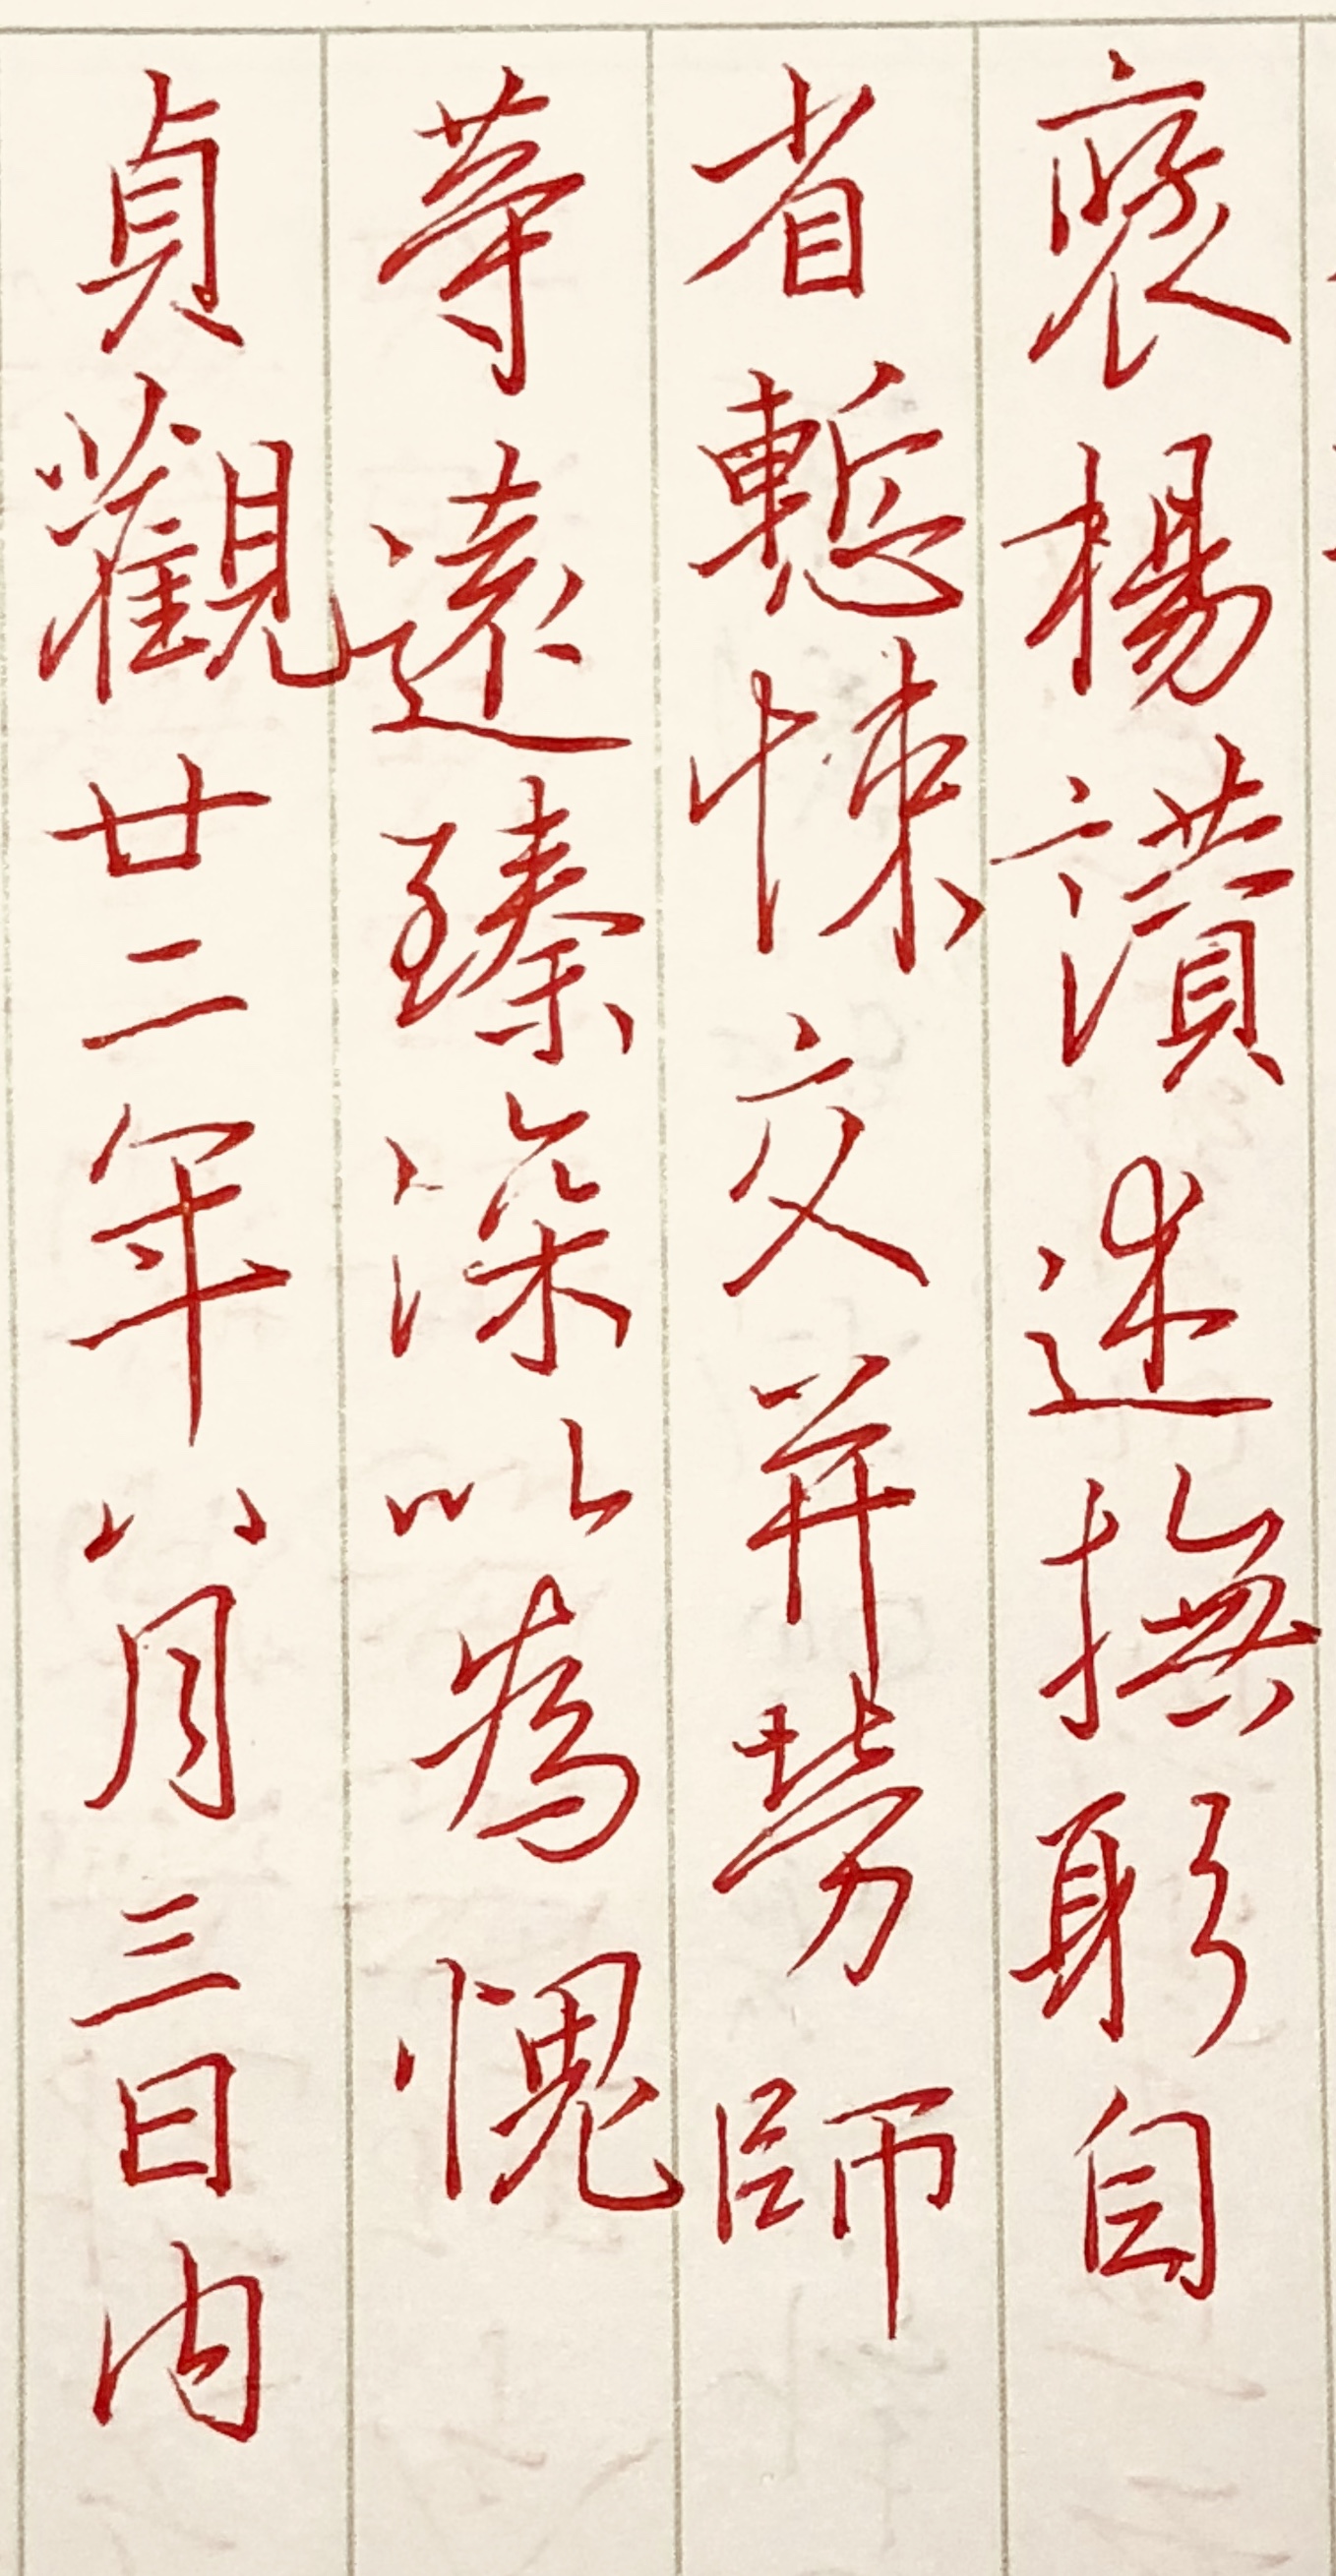 褒楊讃述撫躬自
省慙悚交并勞師
等遠臻深以為愧
貞觀廿二年八月三日內